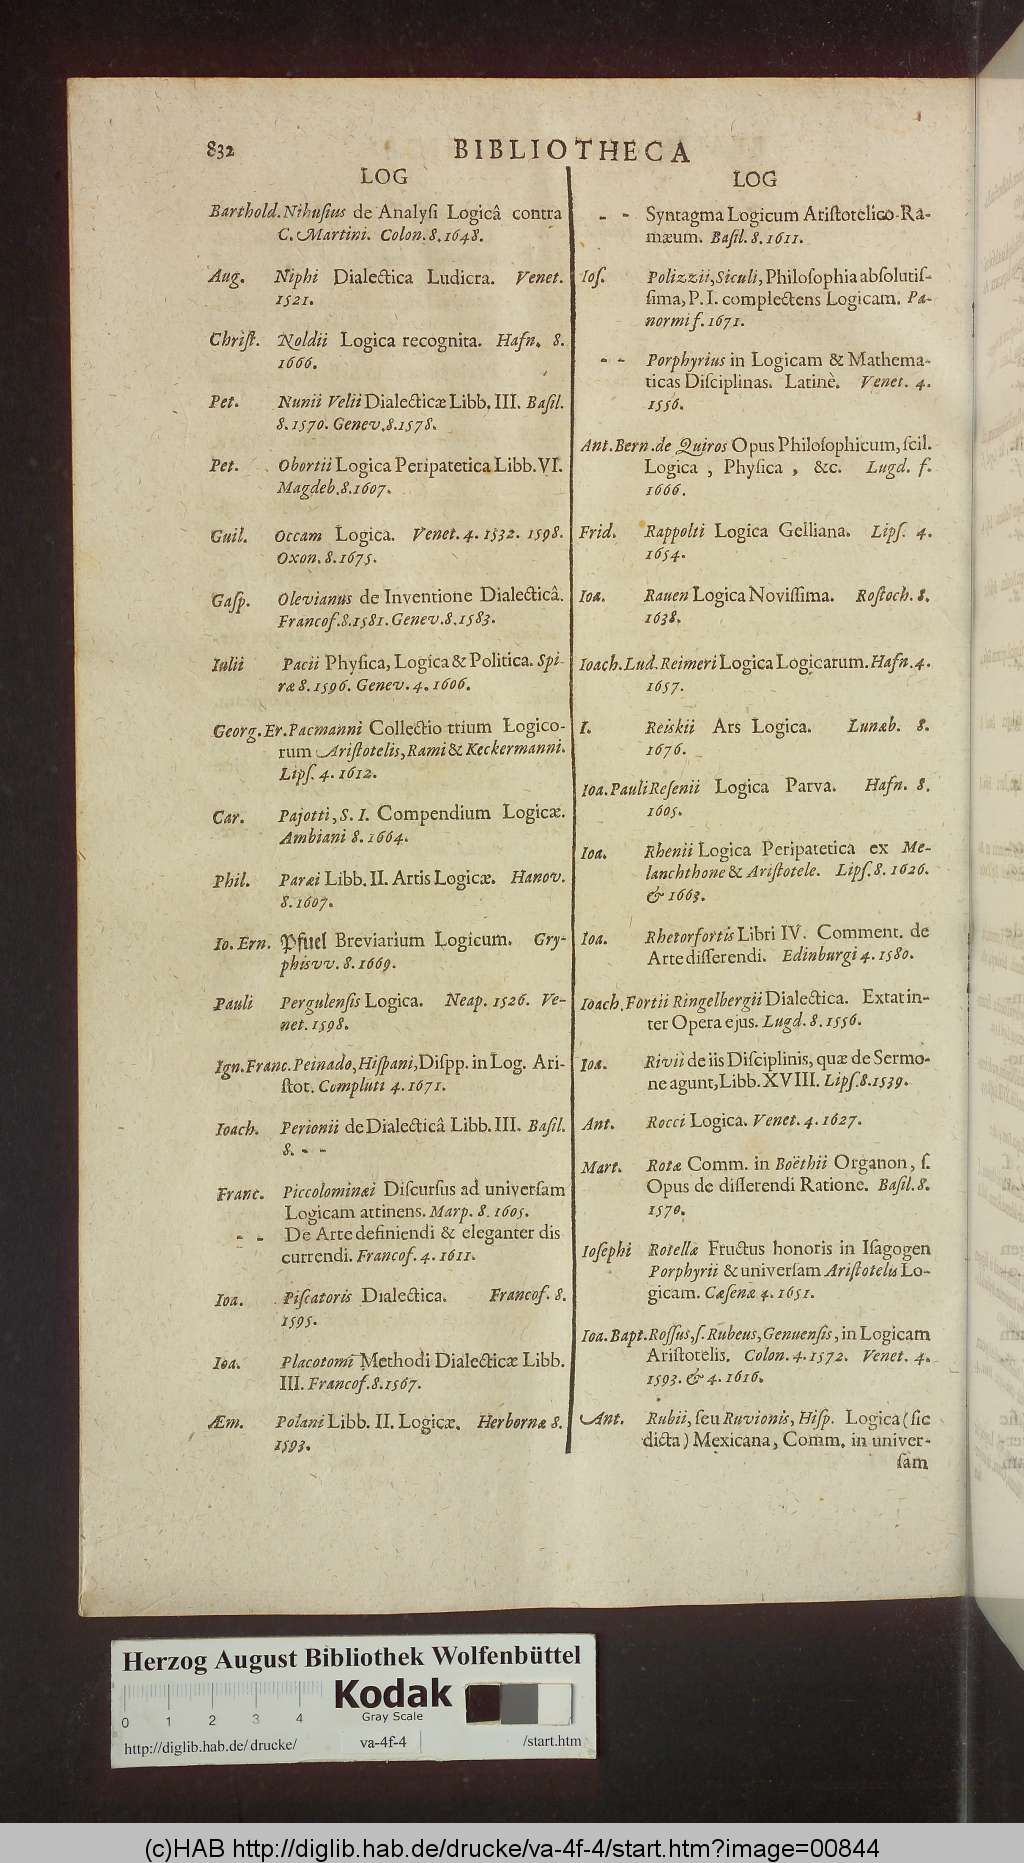 832
BIBLIOTHECA
LOG
Barthold. Nihusius de Analysi Logicâ contra
C. Martini. Colon. 8. 1648.
Aug. Niphi Dialectica Ludicra. Venet.
1521.
Christ. Noldii Logica recognita. Hafn. 8.
1666.
Pet. Nunii Velii Dialecticæ Libb. III. Basil.
8. 1570. Genev. 8. 1578.
Pet. Obortii Logica Peripatetica Libb. VI.
Magdeb. 8. 1607.
Guil. Occam Logica. Venet. 4. 1532. 1598.
Oxon. 8. 1675.
Gasp. Olevianus de Inventione Dialecticâ.
Francof. 8. 1581. Genev. 8. 1583.
Iulii Pacii Physica, Logica & Politica. Spi-
ræ 8. 1596. Genev. 4. 1606.
Georg. Er. Pacmanni Collectio trium Logico-
rum Aristotelis, Rami & Keckermanni.
Lips. 4. 1612.
Car. Pajotti, S. I. Compendium Logicæ.
Ambiani 8. 1664.
Phil. Paræi Libb. II. Artis Logicæ. Hanov.
8. 1607.
Io. Ern. Pfuel Breviarium Logicum. Gry-
phisvv. 8. 1669.
Pauli Pergulensis Logica. Neap. 1526. Ve-
net. 1598.
Ign. Franc. Peinado, Hispani, Dispp. in Log. Ari-
stot. Compluti 4. 1671.
Ioach. Perionii de Dialecticâ Libb. III. Basil.
8. - -
Franc. Piccolominæi Discursus ad universam
Logicam attinens. Marp. 8. 1605.
- - De Arte definiendi & eleganter dis
currendi. Francof. 4. 1611.
Ioa. Piscatoris Dialectica. Francof. 8.
1595.
Ioa. Placotomi Methodi Dialecticæ Libb.
III. Francof. 8. 1567.
Æm. Polani Libb. II. Logicæ. Herbornæ 8.
1593.
LOG
- - Syntagma Logicum Aristotelico-Ra-
mæum. Basil. 8. 1611.
Ios. Polizzii, Siculi, Philosophia absolutis-
sima, P. I. complectens Logicam. Pa-
normi f. 1671.
- - Porphyrius in Logicam & Mathema-
ticas Disciplinas. Latinè. Venet. 4.
1556.
Ant. Bern. de Quiros Opus Philosophicum, scil.
Logica, Physica, &c. Lugd. f.
1666.
Frid. Rappolti Logica Gelliana. Lips. 4.
1654.
Ioa. Rauen Logica Novissima. Rostoch. 8.
1638.
Ioach. Lud. Reimeri Logica Logicarum. Hafn. 4.
1657.
I. Reiskii Ars Logica. Lunæb. 8.
1676.
Ioa. Pauli Resenii Logica Parva. Hafn. 8.
1605.
Ioa. Rhenii Logica Peripatetica ex Me-
lanchthone & Aristotele. Lips. 8. 1626.
& 1663.
Ioa. Rhetorfortis Libri IV. Comment. de
Arte disserendi. Edinburgi 4. 1580.
Ioach. Fortii Ringelbergii Dialectica. Extat in-
ter Opera ejus. Lugd. 8. 1556.
Ioa. Rivii de iis Disciplinis, quæ de Sermo-
ne agunt, Libb. XVIII. Lips. 8. 1539.
Ant. Rocci Logica. Venet. 4. 1627.
Mart. Rotæ Comm. in Boëthii Organon, s.
Opus de disserendi Ratione. Basil. 8.
1570.
Iosephi Rotellæ Fructus honoris in Isagogen
Porphyrii & universam Aristotelis Lo-
gicam. Cæsenæ 4. 1651.
Ioa. Bapt. Rossus, s. Rubeus, Genuensis, in Logicam
Aristotelis. Colon. 4. 1572. Venet. 4.
1593. & 4. 1616.
Ant. Rubii, seu Ruvionis, Hisp. Logica (sic
dicta) Mexicana, Comm. in univer-
sam
Herzog August Bibliothek Wolfenbüttel
Kodak
Gray Scale
0 1 2 3 4
http://diglib.hab.de/drucke/ va-4f-4 /start.htm
(c)HAB http://diglib.hab.de/drucke/va-4f-4/start.htm?image=00844